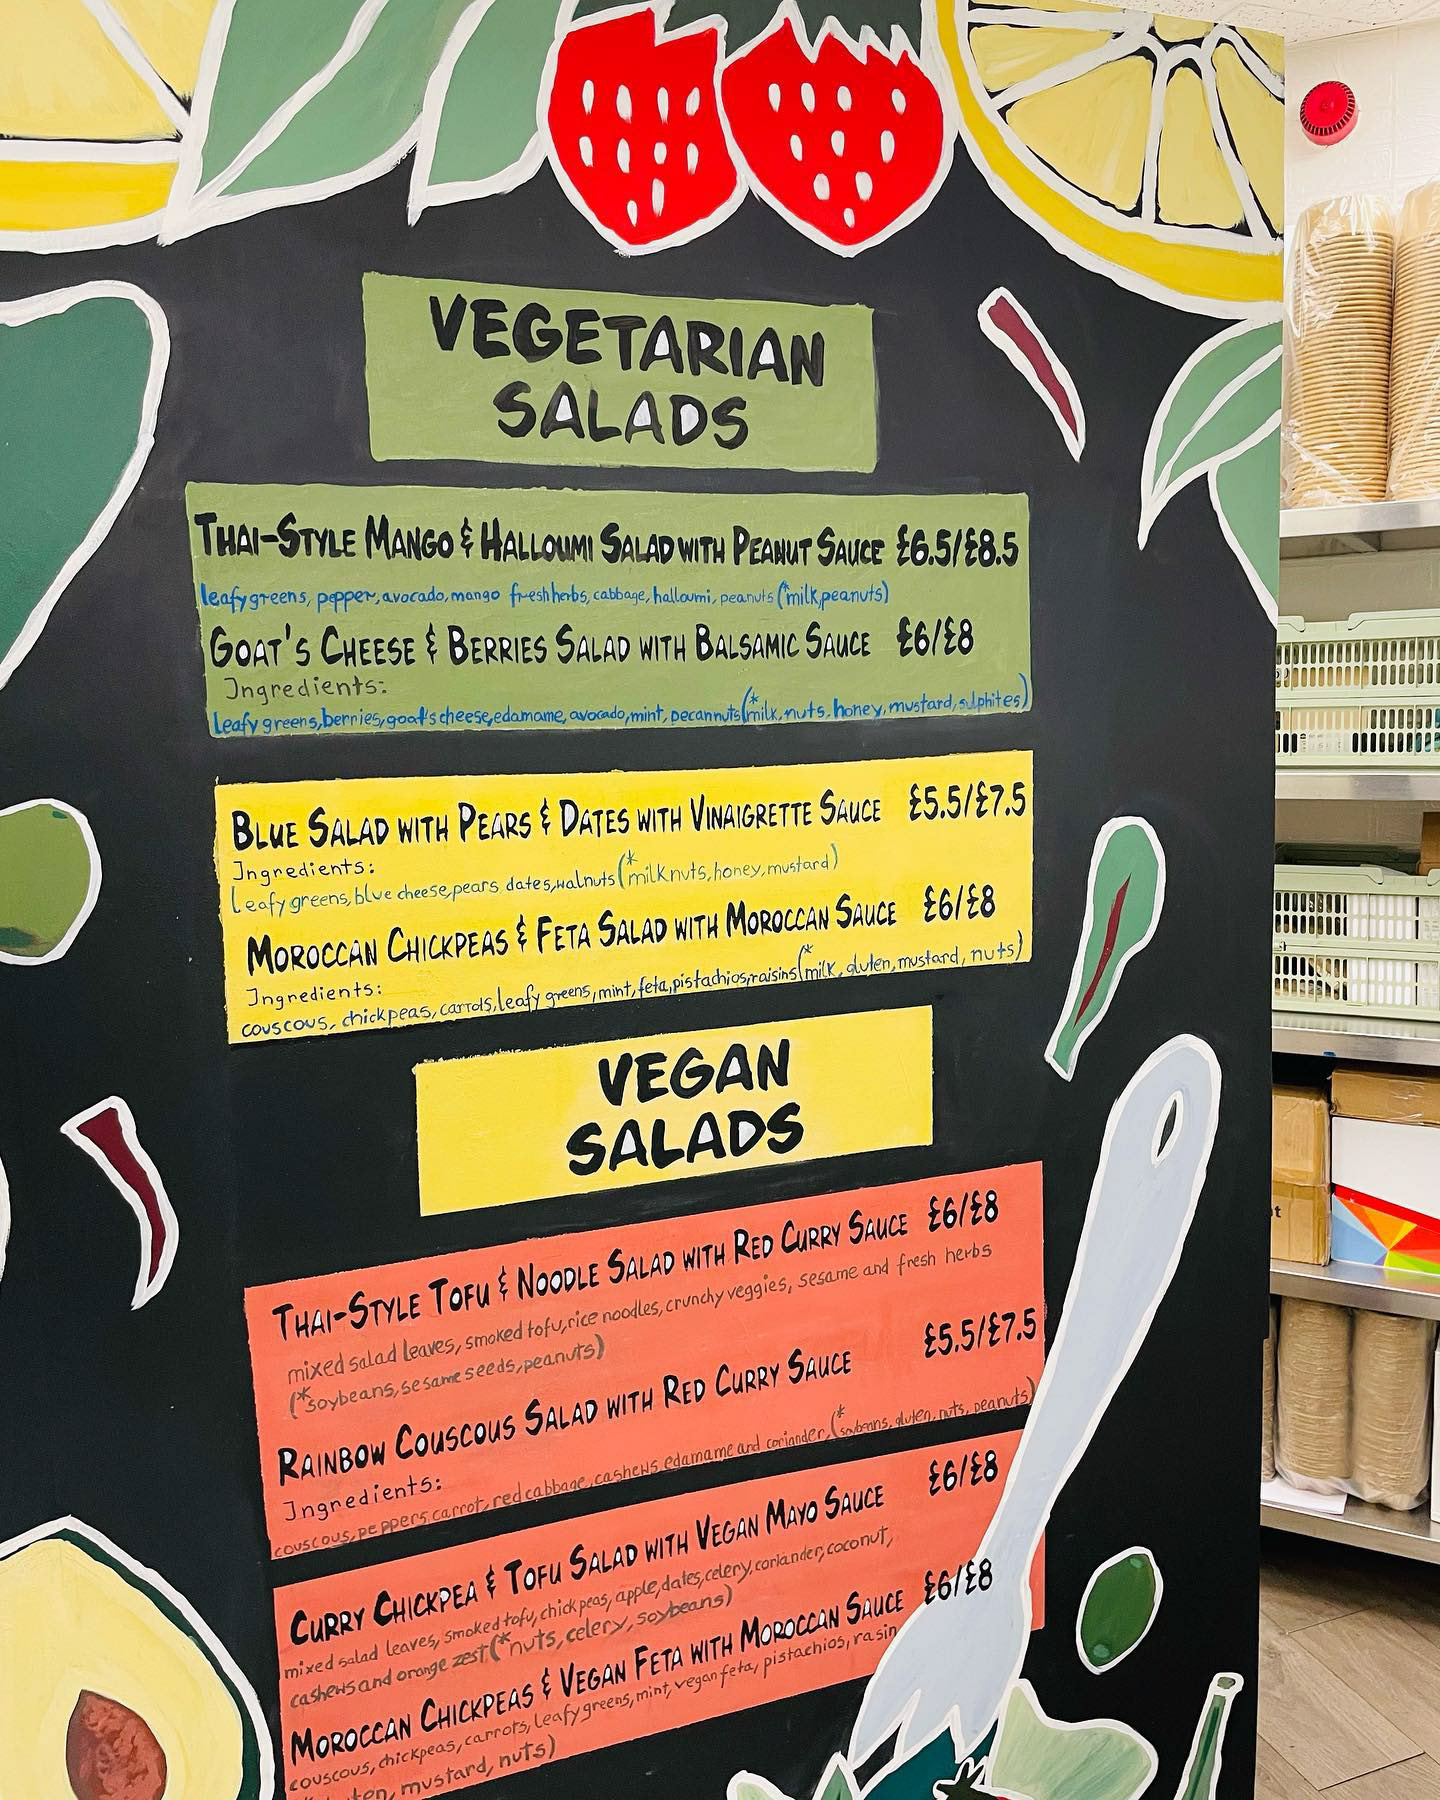 VEGETARIAN
SALADS
THAI-STYLE MANGO & HALLOUMI SALAD WITH PEANUT SAUCE £6.5/£8.5
leafy greens, pepper, avocado, mango fresh herbs, cabbage, halloumi, peanuts (*milk, peanuts)
GOAT'S CHEESE & BERRIES SALAD WITH BALSAMIC SAUCE £6/£8
Ingredients:
leafy greens, berries, goat's cheese, edamame, avocado, mint, pecan nuts (*milk, nuts, honey, mustard, sulphites)
BLUE SALAD WITH PEARS & DATES WITH VINAIGRETTE SAUCE £5.5/£7.5
Ingredients:
leafy greens, blue cheese, pears, dates, walnuts (*milk nuts, honey, mustard)
MOROCCAN CHICKPEAS & FETA SALAD WITH MOROCCAN SAUCE £6/£8
Ingredients:
couscous, chickpeas, carrots, leafy greens, mint, feta, pistachios, raisins (*milk, gluten, mustard, nuts)
VEGAN
SALADS
THAI-STYLE TOFU & NOODLE SALAD WITH RED CURRY SAUCE £6/£8
mixed salad leaves, smoked tofu, rice noodles, crunchy veggies, sesame and fresh herbs
(*soybeans, sesame seeds, peanuts)
RAINBOW COUSCOUS SALAD WITH RED CURRY SAUCE £5.5/£7.5
Ingredients:
couscous, peppers, carrot, red cabbage, cashews edamame and coriander, (*soybeans, gluten, nuts, peanuts)
CURRY CHICKPEA & TOFU SALAD WITH VEGAN MAYO SAUCE £6/£8
mixed salad leaves, smoked tofu, chickpeas, apple, dates, celery, coriander, coconut,
cashews and orange zest (*nuts, celery, soybeans)
MOROCCAN CHICKPEAS & VEGAN FETA WITH MOROCCAN SAUCE £6/£8
couscous, chickpeas, carrots, leafy greens, mint, vegan feta, pistachios, rasin
mustard, nuts)